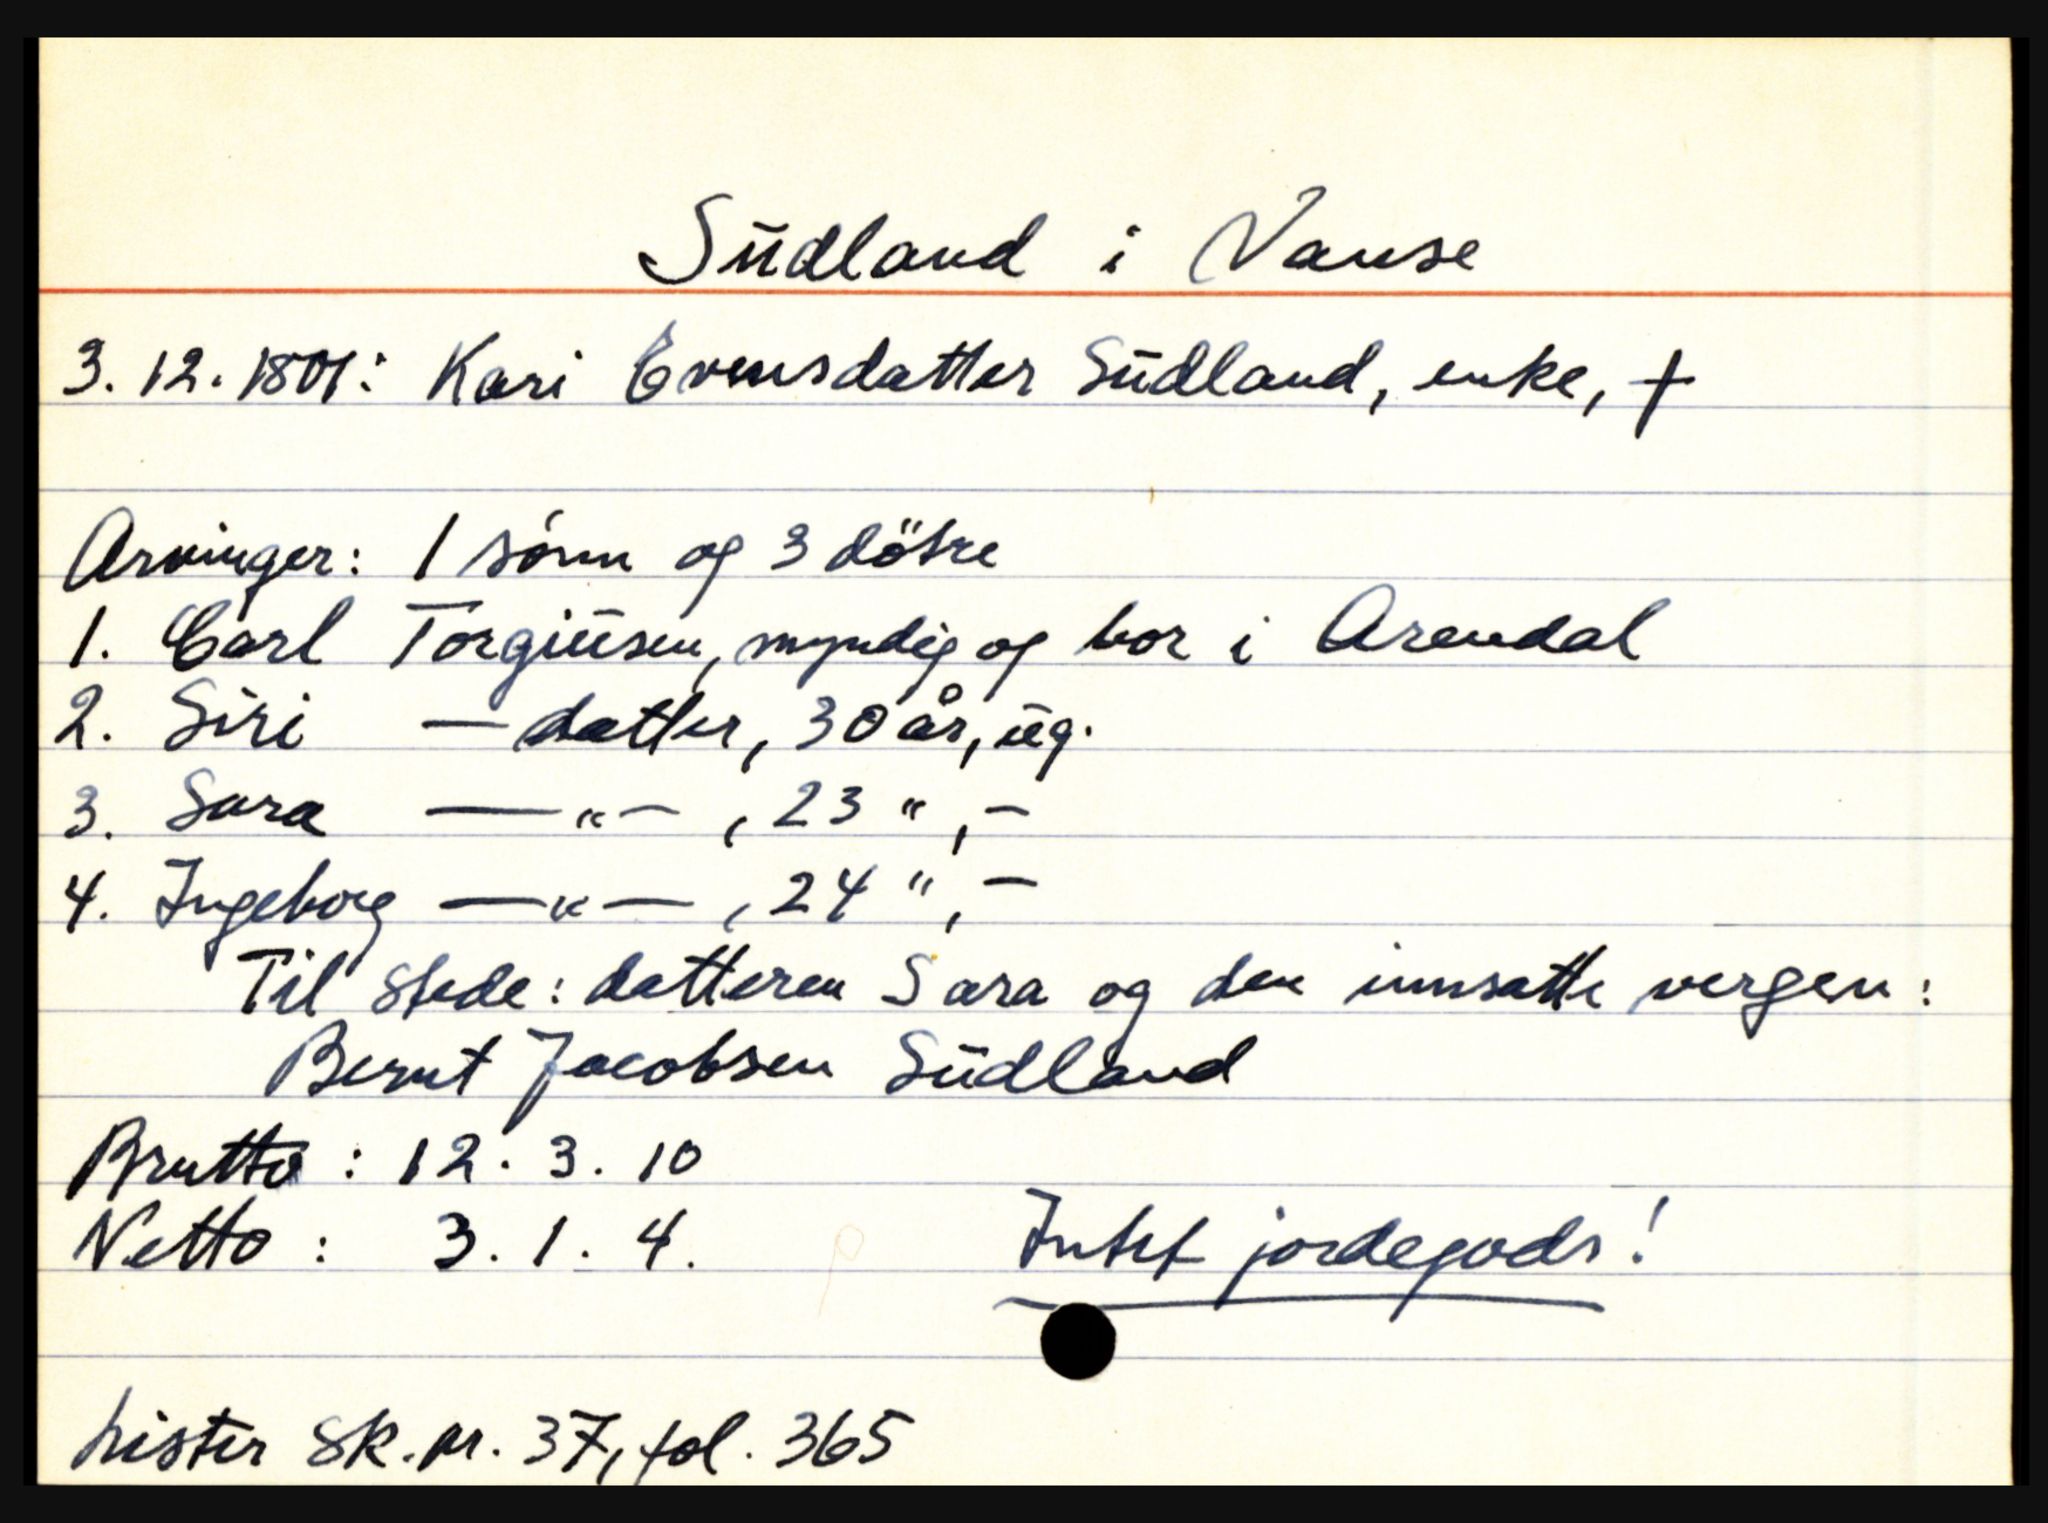 Sudland i Vanse
3.12.1801: Kari Evensdatter Sudland, enke, †
Arvinger: 1 sónn og 3 dötre
1. Carl Torgiusen, myndig og bor i Arendal
2. Siri — datter, 30 år, ug.
3. Sara — " — , 23 ", —
4. Ingeborg — " — , 24 ", —
Til stede: datteren Sara og den innsatte vergen:
Bernt Jacobsen Sudland
Brutto: 12. 3. 10
Netto: 3. 1. 4. Intet jordegods!
Lister sk. nr. 37, fol. 365